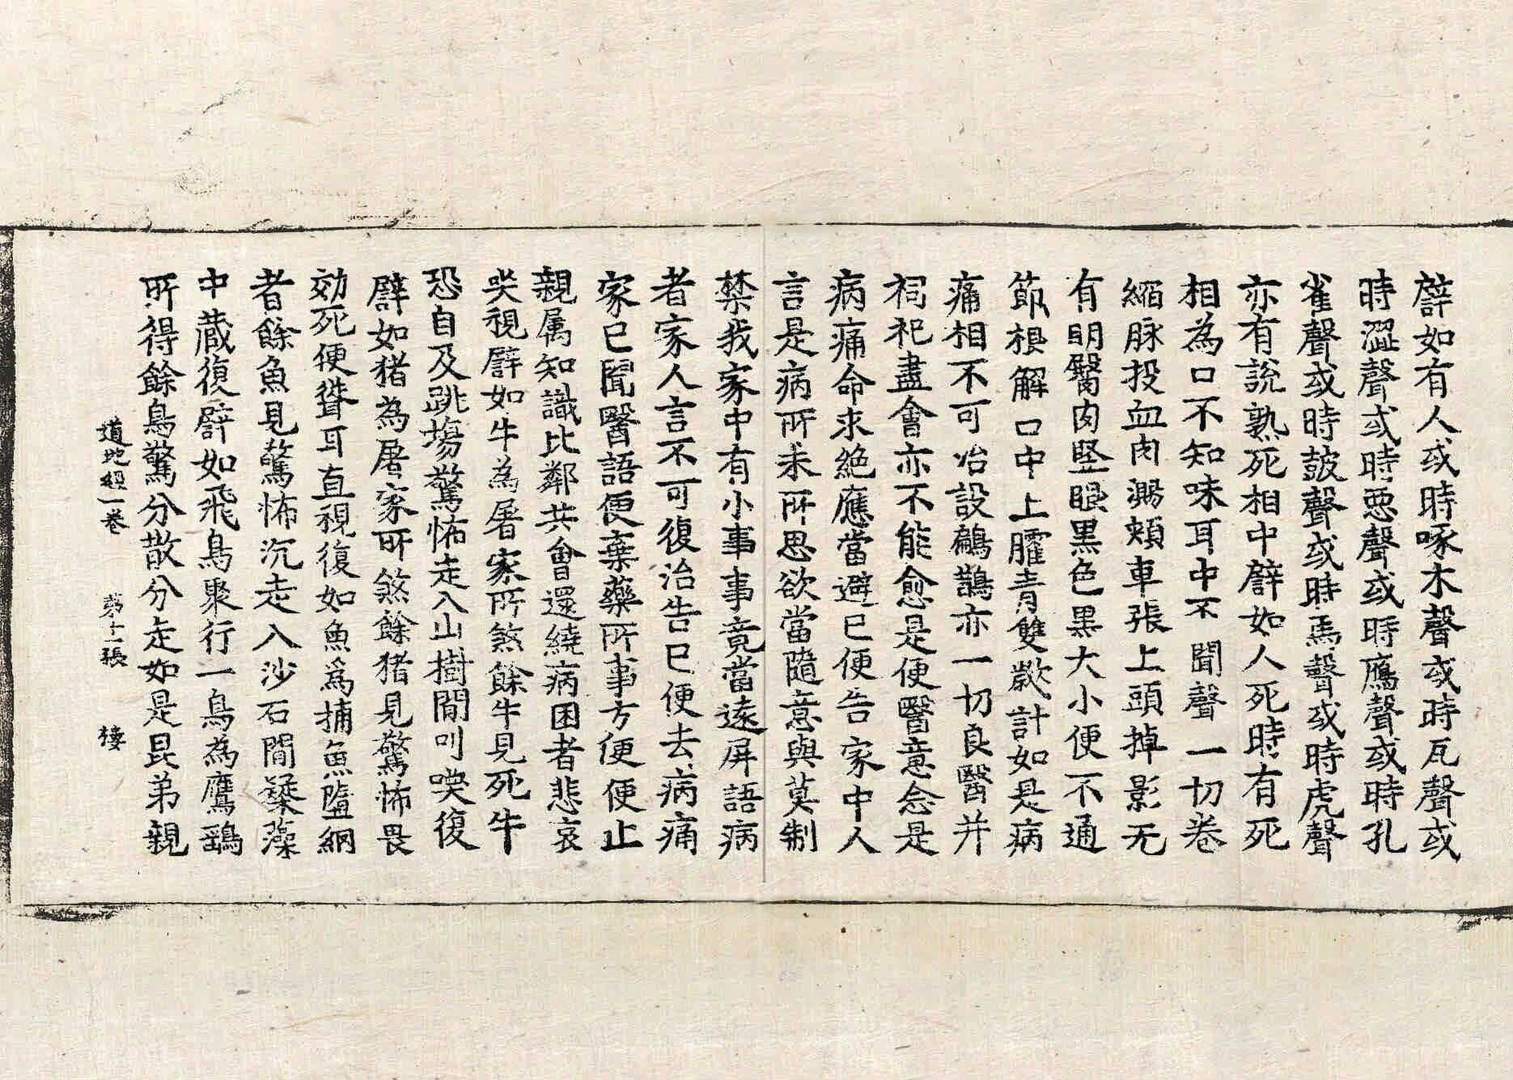 譬如有人或時啄木聲或時瓦聲或
時澁聲或時惡聲或時鴈聲或時孔
雀聲或時皷聲或時馬聲或時虎聲
亦有說熟死相中譬如人死時有死
相為口不知味耳中不聞聲一切卷
縮脉投血肉㵱頰車張上頭掉影无
有明臋肉竪眼黑色黒大小便不通
節根解口中上臛青雙噦計如是病
痛相不可治設鶣鵲亦一切良醫并
祠祀盡會亦不能愈是便醫意念是
病痛命求絶應當避已便告家中人
言是病所未所思欲當隨意與莫制
禁我家中有小事事竟當遠屏語病
者家人言不可復治告已便去病痛
家已聞醫語便棄藥所事方便便止
親属知識比鄰共會還繞病困者悲哀
哭視譬如牛為屠家所煞餘牛見死牛
恐自及跳塲驚怖走入山樹間叫喚復
譬如猪為屠家所煞餘猪見驚怖畏
効死便聳耳直視復如魚爲捕魚墮網
者餘魚見驚怖沉走入沙石間蘃藻
中藏復譬如飛鳥聚行一鳥為鷹鷂
所得餘鳥驚分散分走如是昆弟親
道地經一卷 第十一張 棲